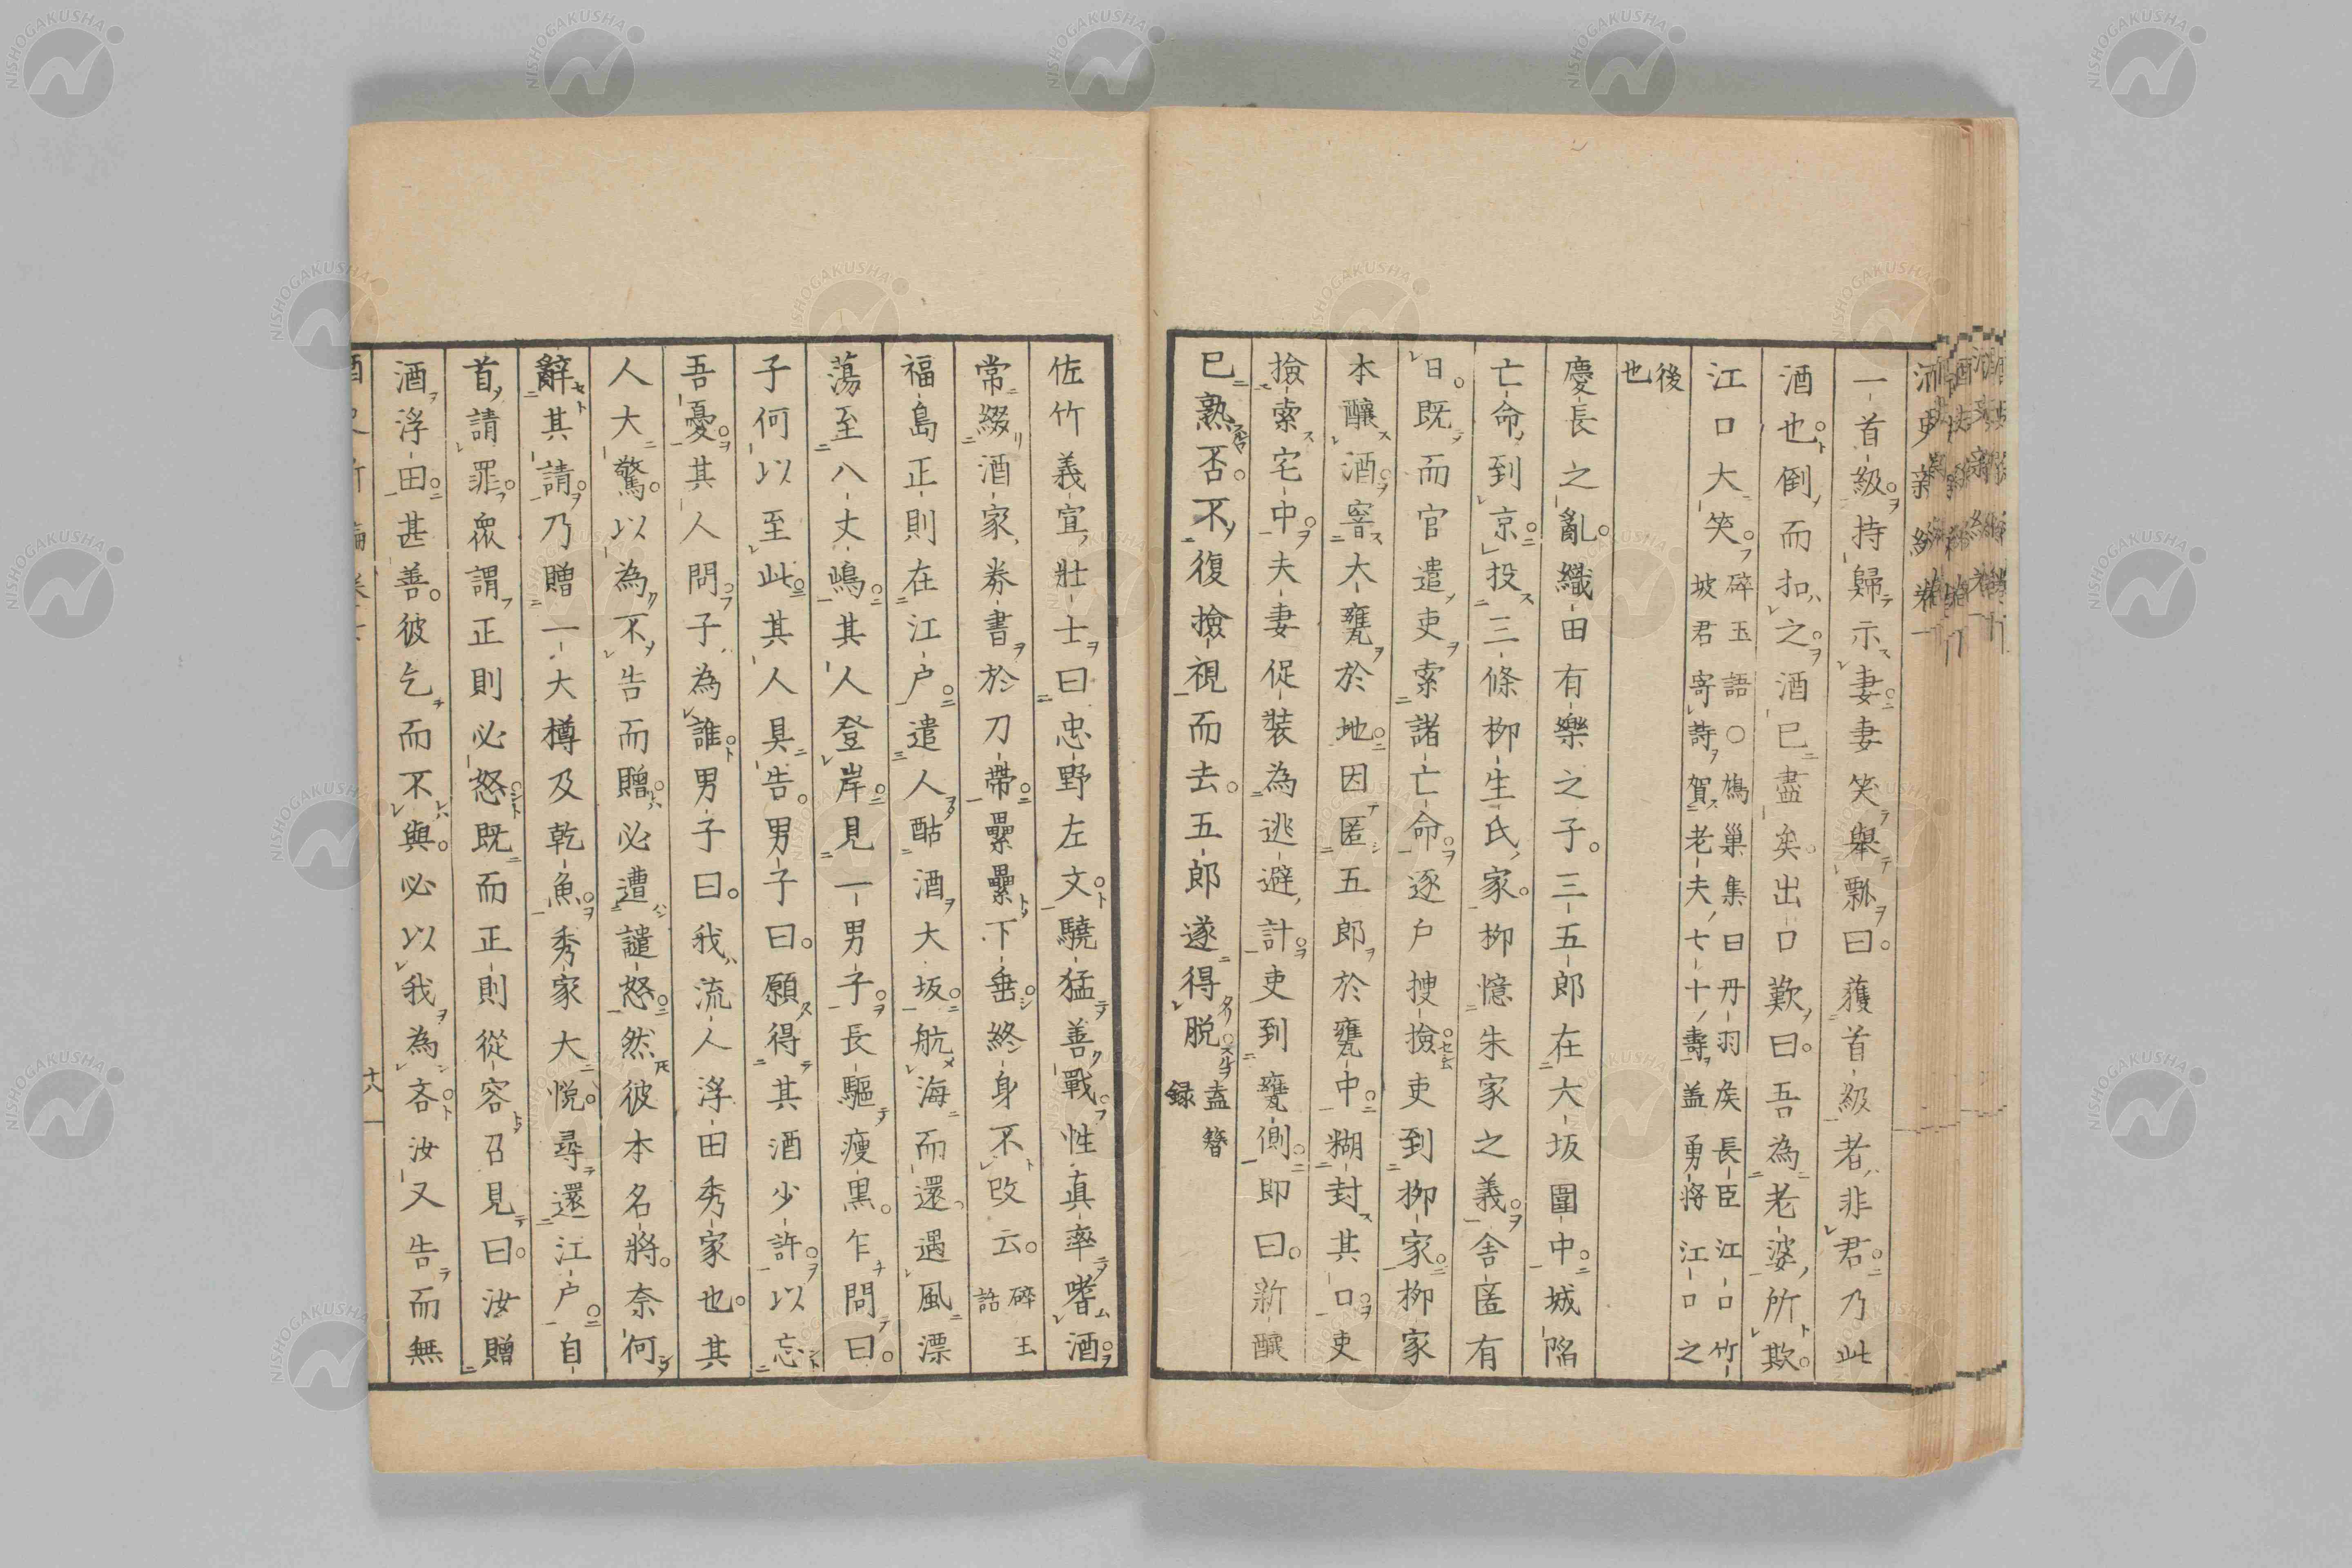 一首級持歸示妻妻笑舉瓢曰獲首級者非君乃此
酒也倒而扣之酒已盡矣出口歎曰吾為老婆所欺
江口大笑碎玉語○鳩巢集曰丹羽矦長臣江口竹
坡君寄詩賀老夫七十壽盖勇將江口之
後
也
慶長之亂織田有樂之子三五郎在大坂圍中城陷
亡命到京投三條柳生氏家柳憶朱家之義舍匿有
日既而官遣吏索諸亡命逐戶搜撿吏到柳家柳家
本釀酒窖大甕於地因匿五郎於甕中糊封其口吏
撿索宅中夫妻促裝為逃避計吏到甕側即曰新釀
已熟否不復撿視而去五郎遂得脫盍簪
録
佐竹義宣壯士曰忠野左文驍猛善戰性真率嗜酒
常綴酒家券書於刀帶纍纍下垂終身不改云碎玉
話
福島正則在江戶遣人酤酒大坂航海而還遇風漂
蕩至八丈嶋其人登岸見一男子長軀瘦黑乍問曰
子何以至此其人具告男子曰願得其酒少許以忘
吾憂其人問子為誰男子曰我流人浮田秀家也其
人大驚以為不告而贈必遭譴怒然彼本名將奈何
辭其請乃贈一大樽及乾魚秀家大悅尋還江戶自
首請罪眾謂正則必怒既而正則從容召見曰汝贈
酒浮田甚善彼乞而不與必以我為吝汝又告而無